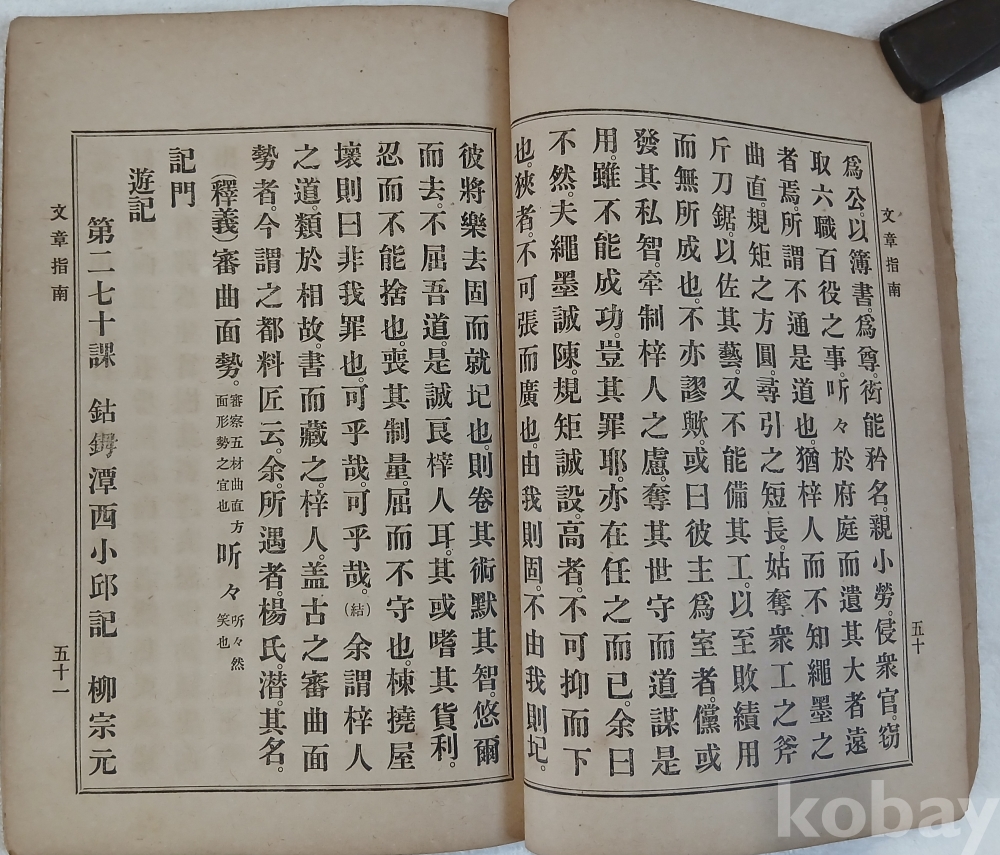 文章指南
五十
爲公。以簿書。爲尊。衒能矜名。親小勞。侵衆官。窃
取六職百役之事。听々於府庭而遺其大者遠
者焉。所謂不通是道也。猶梓人而不知繩墨之
曲直。規矩之方圓。尋引之短長。姑奪衆工之斧
斤刀鋸。以佐其藝。又不能備其工。以至敗績用
而無所成也。不亦謬歟。或曰彼主爲室者。儻或
發其私智。牽制梓人之慮。奪其世守而道謀是
用。雖不能成功。豈其罪耶。亦在任之而已。余曰
不然。夫繩墨誠陳。規矩誠設。高者。不可抑而下
也。狹者。不可張而廣也。由我則固。不由我則圮。
彼將樂去固而就圮也。則卷其術默其智。悠爾
而去。不屈吾道。是誠良梓人耳。其或嗜其貨利。
忍而不能捨也。喪其制量。屈而不守也。棟撓屋
壞則曰非我罪也。可乎哉。可乎哉。(結)余謂梓人
之道。類於相故。書而藏之。梓人。盖古之審曲面
勢者。今謂之都料匠云。余。所遇者。楊氏。潜。其名。
(釋義)審曲面勢。審察五材曲直方面形勢之宜也 听々 听々然笑也
記門
遊記
第二七十課 鈷鉧潭西小邱記 柳宗元
文章指南
五十一
kobay